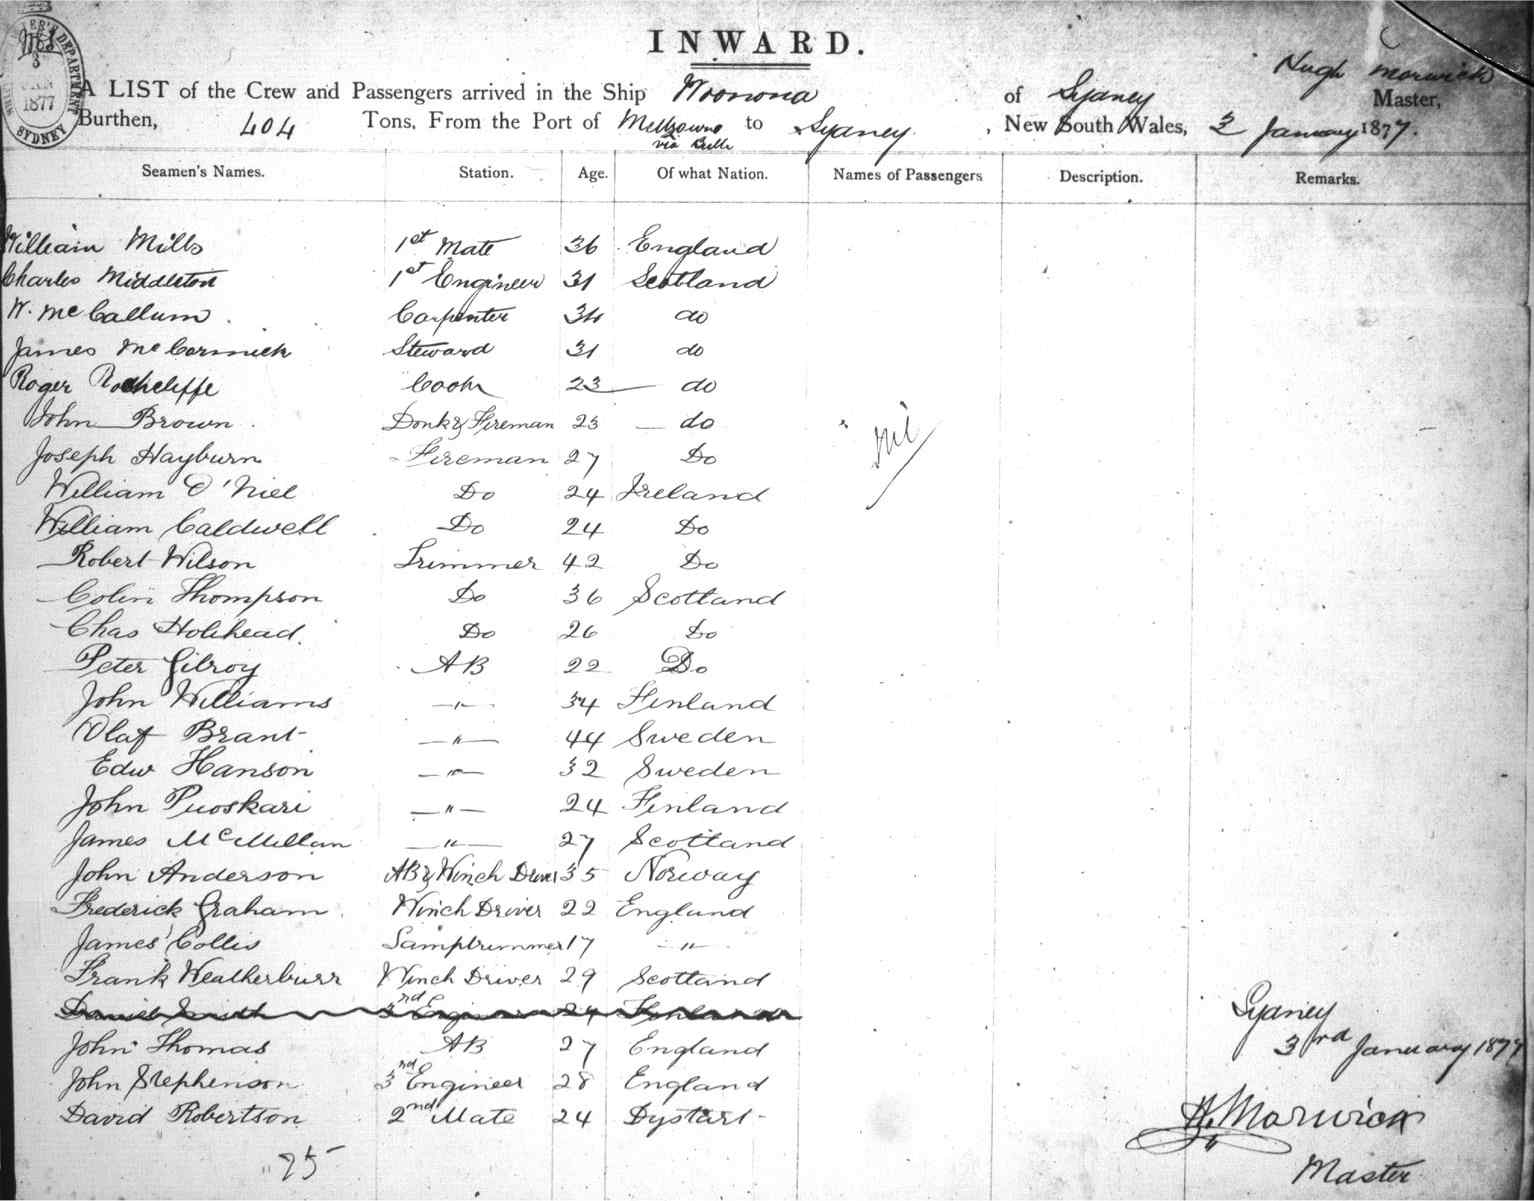 INWARD.
Hugh Morwick
A LIST of the Crew and Passengers arrived in the Ship Woonona of Sydney Master,
Burthen, 404 Tons, From the Port of Melbourne to Sydney, New South Wales, 3 January 1877.
via
3
1877
SYDNEY
Seamen's Names. Station. Age. Of what Nation. Names of Passengers Description. Remarks.
William Mills 1st Mate 36 England
Charles Middleton 1st Engineer 31 Scotland
W. McCallum Carpenter 34 do
James McCormick Steward 31 do
Roger Rothcliffe Cook 23 do
John Brown Donk & Fireman 23 do
nil
Joseph Hayburn Fireman 27 Do
William O'Niel Do 24 Ireland
William Caldwell Do 24 Do
Robert Wilson Trimmer 42 Do
Colin Thompson Do 36 Scotland
Chas Holehead Do 26 Do
Peter Gilroy AB 22 Do
John Williams —"— 34 Finland
Olaf Brant —"— 44 Sweden
Edw Hanson —"— 32 Sweden
John Puoskari —"— 24 Finland
James McMillan —"— 27 Scotland
John Anderson AB & Winch Driver 35 Norway
Frederick Graham Winch Driver 22 England
James Collis Lamptrimmer 17 —"—
Frank Weatherburr Winch Driver 29 Scotland
Daniel Smith 24
John Thomas AB 27 England
John Stephenson 3nd Engineer 28 England
David Robertson 2nd Mate 24 Dysart
25
Sydney
3rd January 1877
H. Morwick
Master